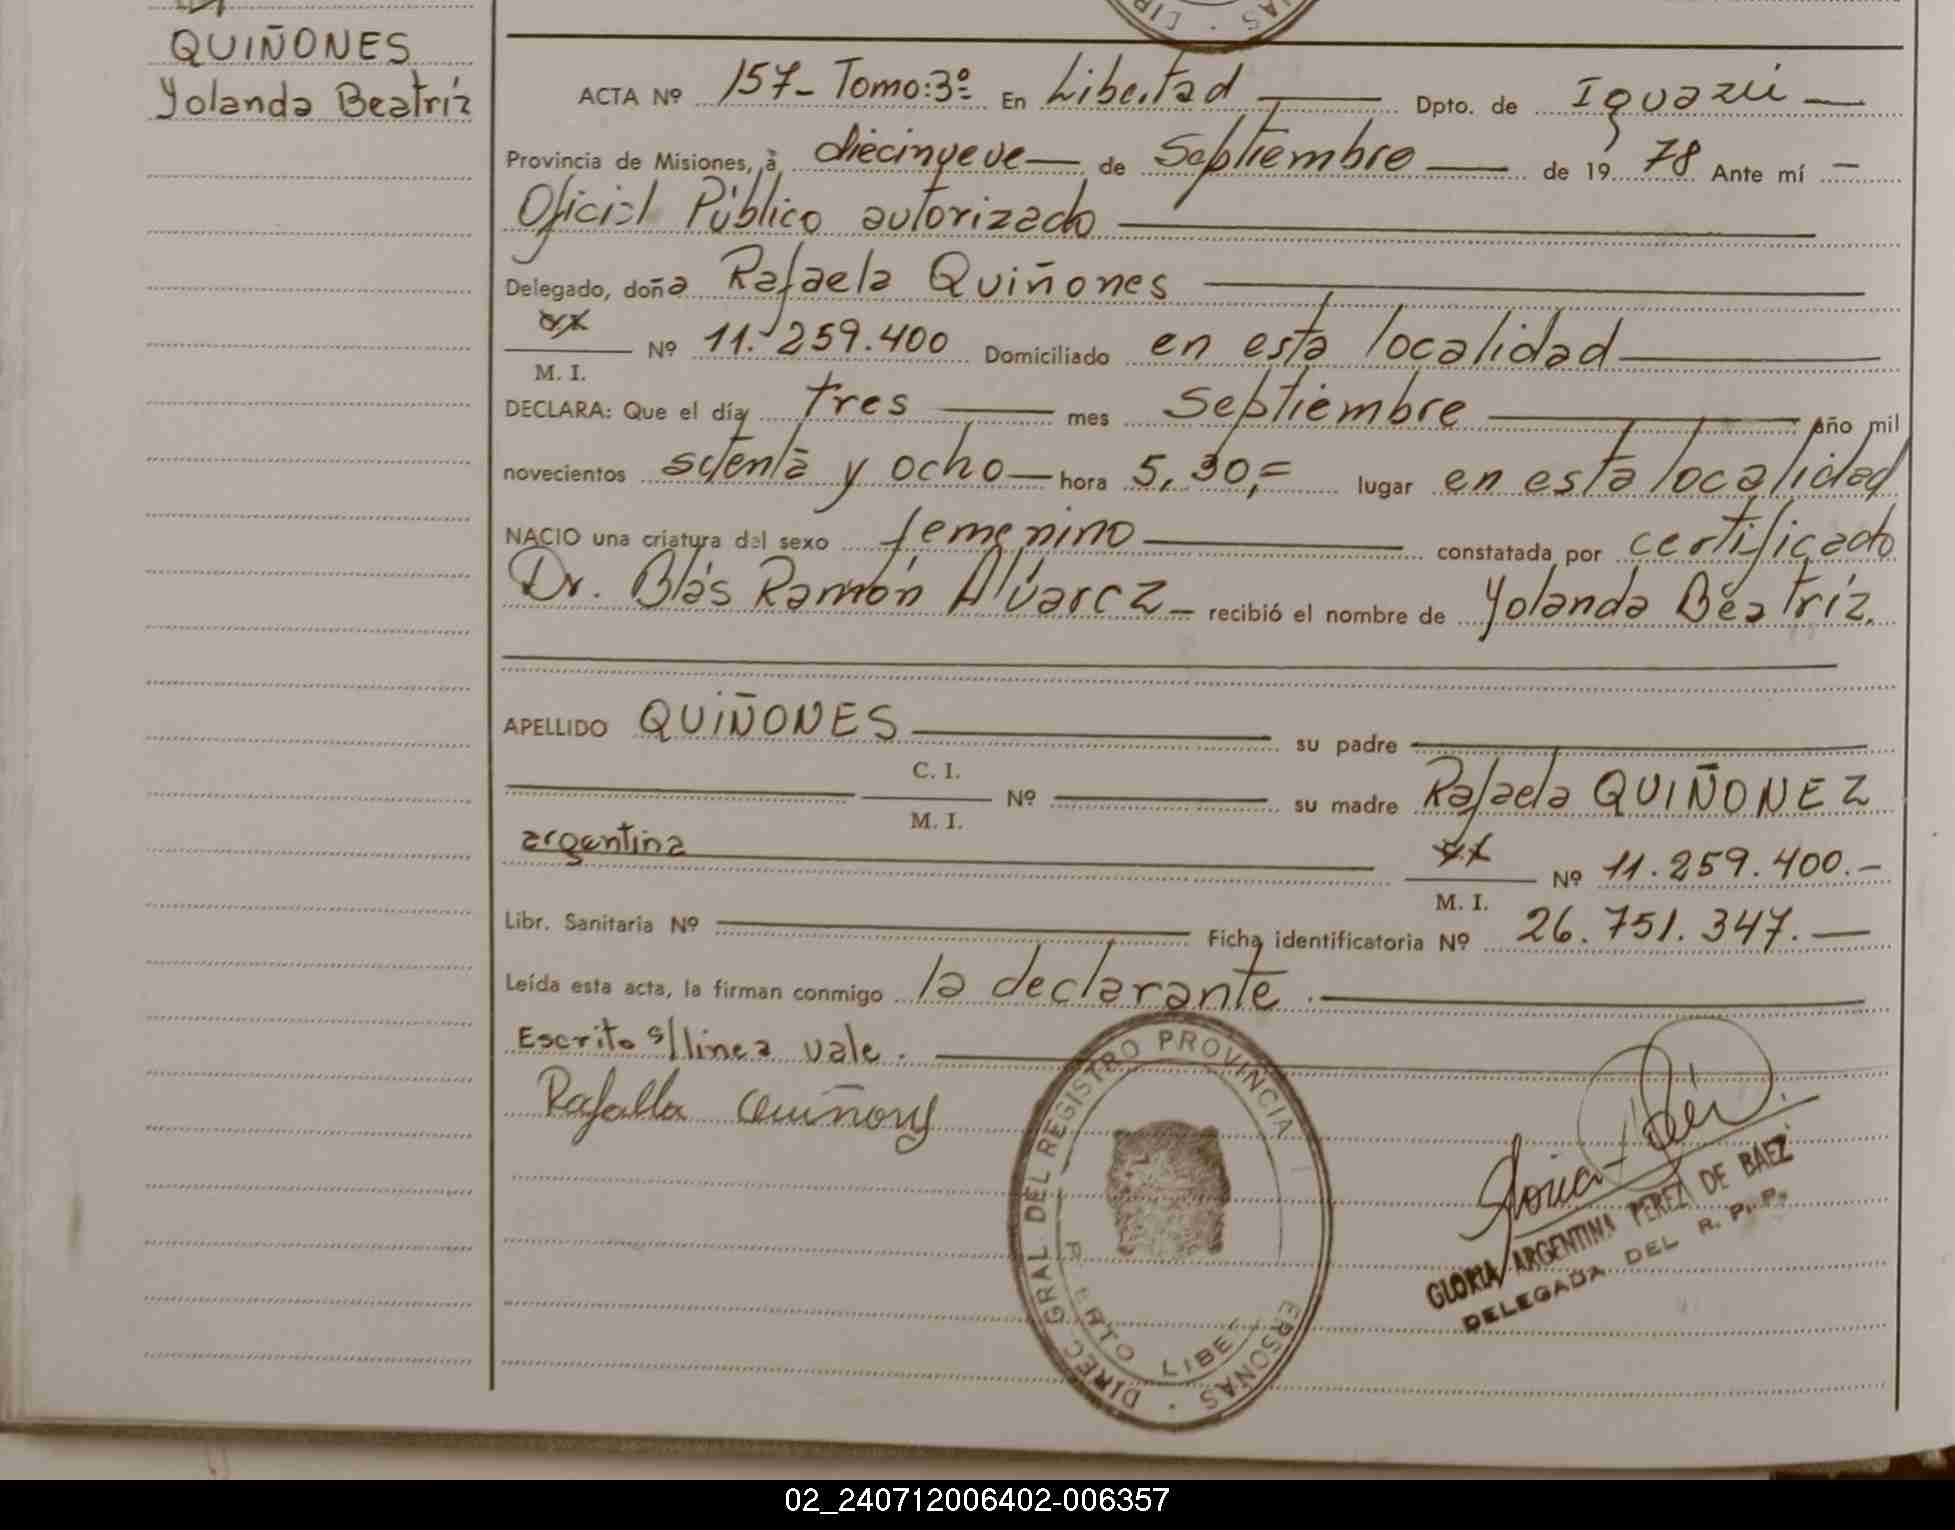 QUIÑONES
Yolanda Beatríz
ACTA Nº 157- Tomo:3º En Libertad Dpto. de Iguazú
Provincia de Misiones, a diecinueve de Septiembre de 1978 Ante mí
Oficial Público autorizado
Delegado, doña Rafaela Quiñones
M. I. Nº 11.259.400 Domiciliado en esta localidad
DECLARA: Que el día tres mes Septiembre año mil
novecientos setenta y ocho hora 5,30,= lugar en esta localidad
NACIO una criatura del sexo femenino constatada por certificado
Dr. Blás Ramón Alvarez - recibió el nombre de Yolanda Béatríz.
APELLIDO QUIÑONES su padre
C. I.
M. I. Nº su madre Rafaela QUIÑONEZ
argentina M. I. Nº 11.259.400.-
Libr. Sanitaria Nº Ficha identificatoria Nº 26.751.347.-
Leída esta acta, la firman conmigo la declarante.
Escrito s/línea vale.
Rafaella Quiñony
DIREC. GRAL DEL REGISTRO PROVINCIAL ERSONAS
LIBE
GLORIA ARGENTINA PEREZ DE BAEZ
DELEGADA DEL R. P. P.
02_240712006402-006357